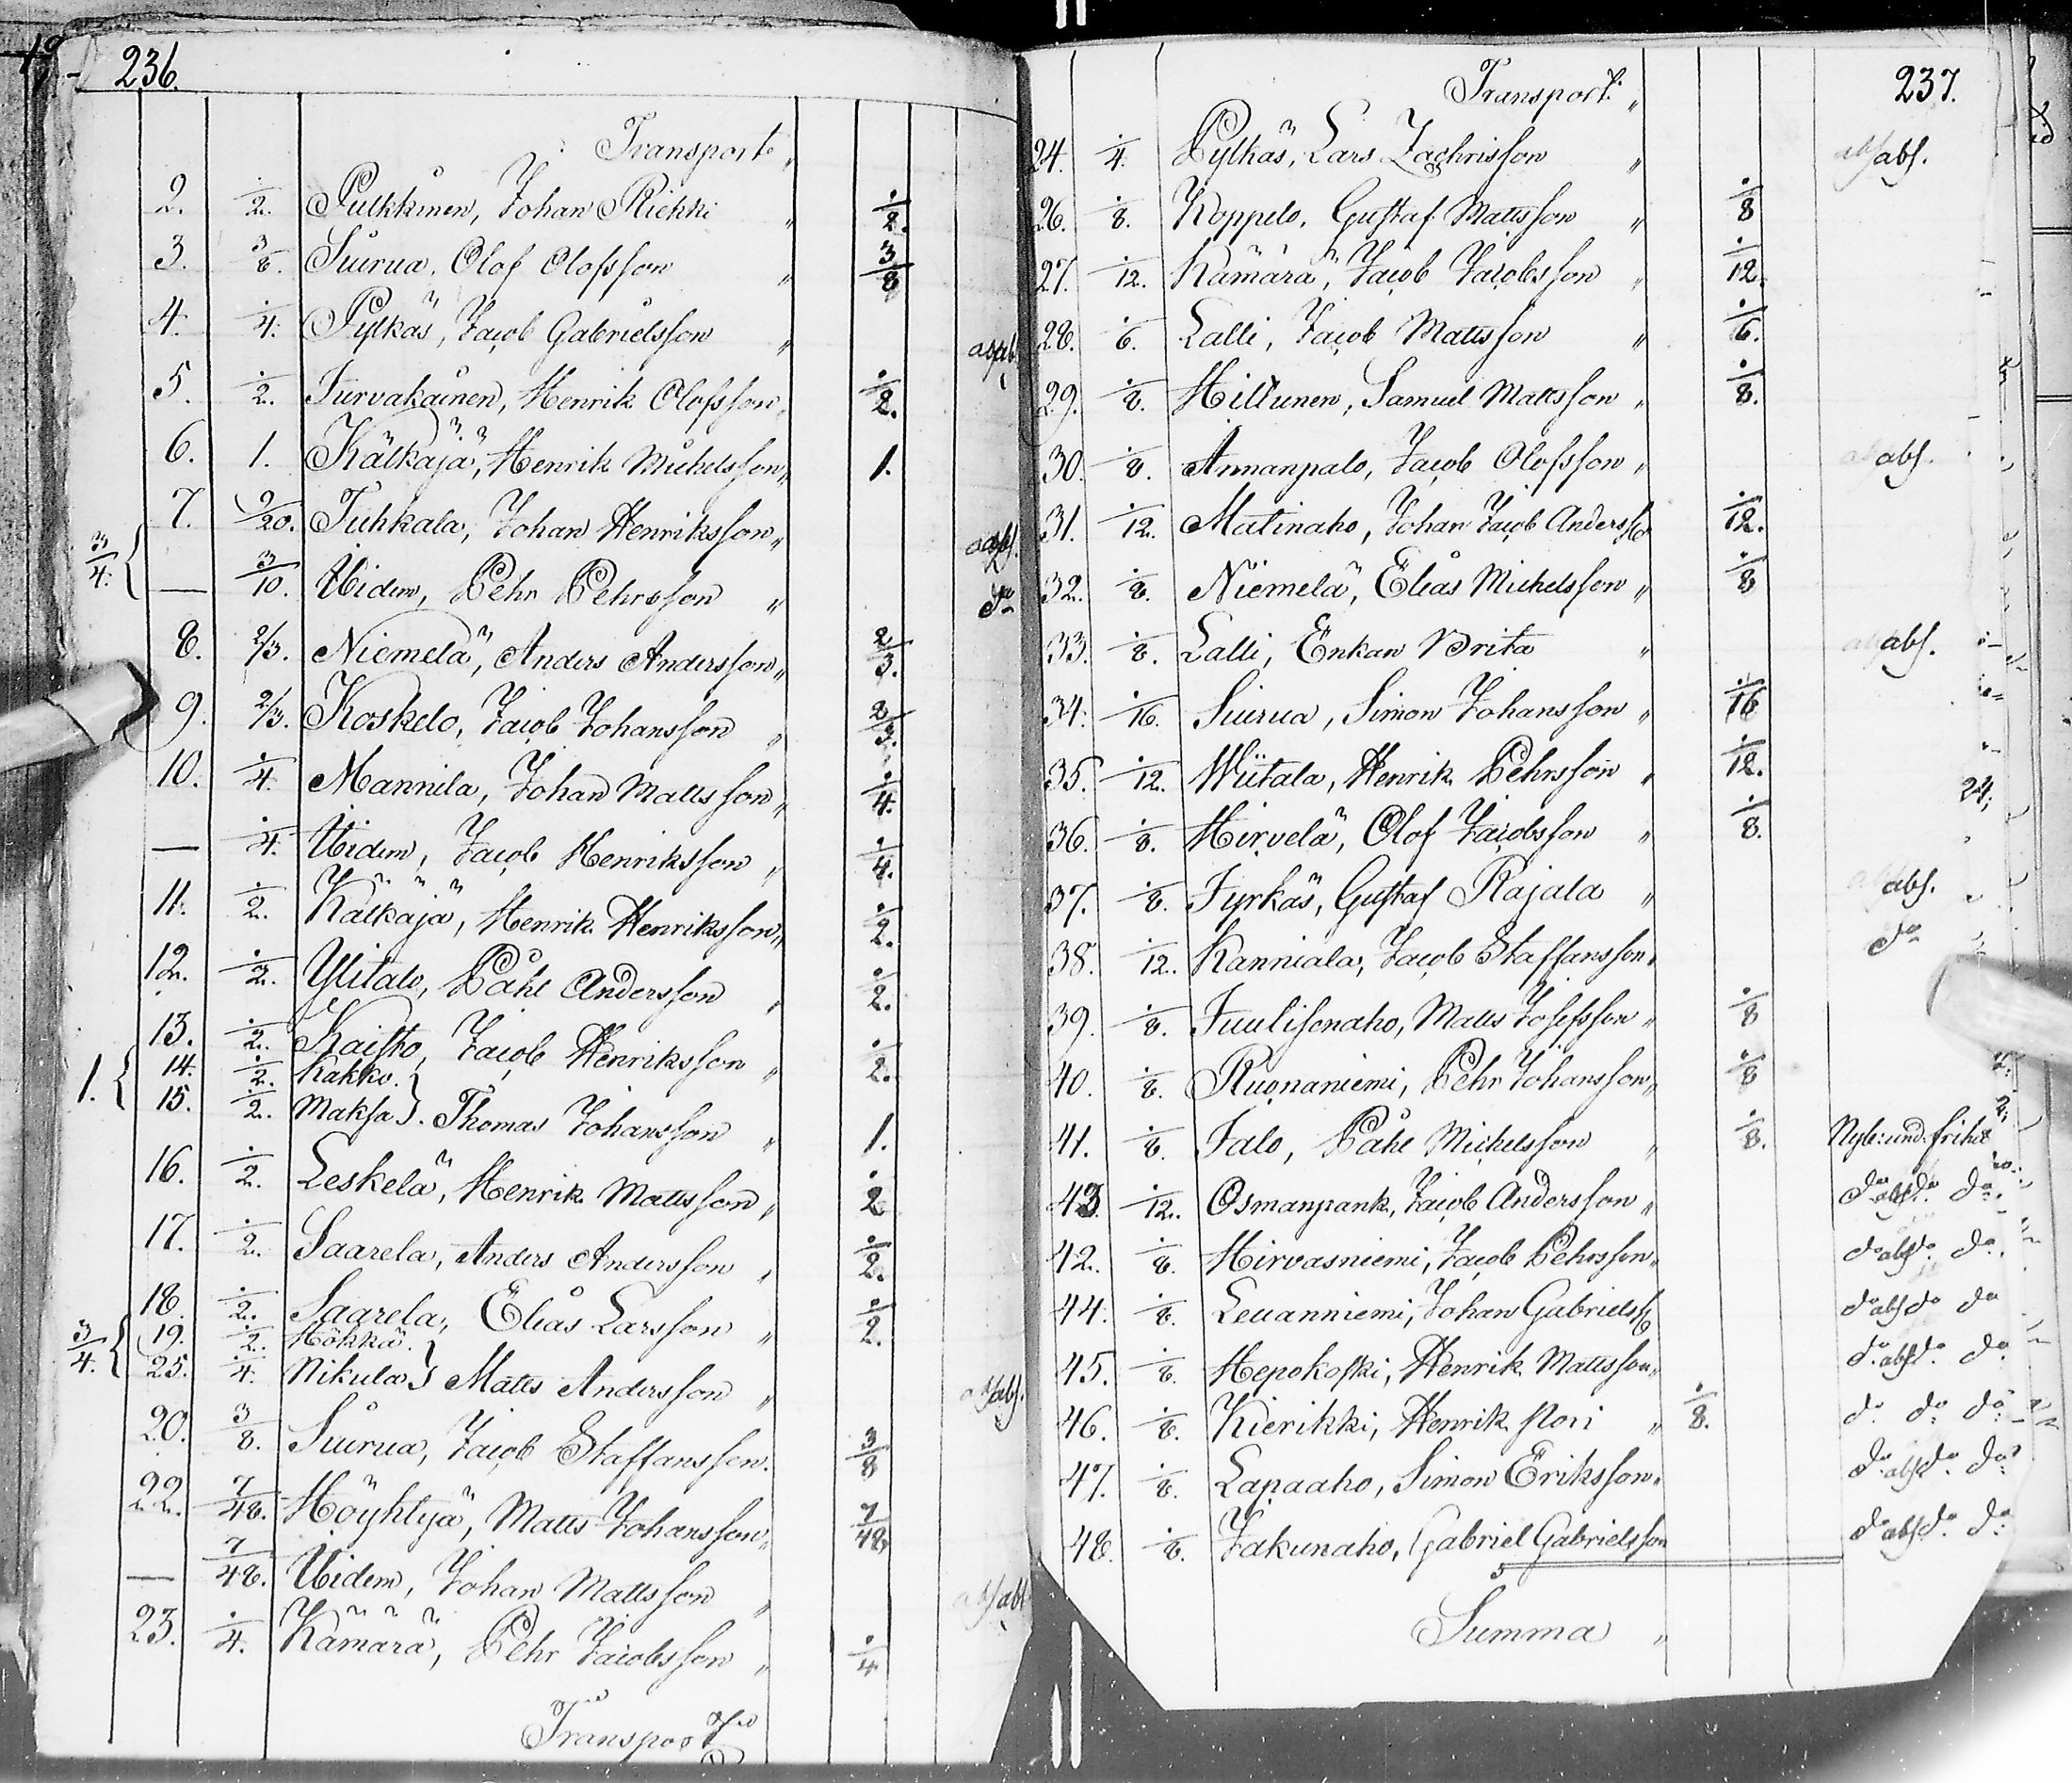 236.
Transport „
2. ∸/2. Pulkkinen, Johan Riekki „ ∸/2.
3. 3/8. Siurua, Olof Olofsson „ 3/8
4. ∸/4. Pylkäs, Jacob Gabrielsson „ abs.
5. ∸/2. Turvakainen, Henrik Olofsson „ ∸/2.
6. 1. Kälkäjä, Henrik Michelsson „ 1.
3/4. { 7. 9/20. Tuhkala, Johan Henriksson „ abs.
— 3/10. Ibidem, Pehr Pehrsson „ do
8. 2/3. Niemelä, Anders Andersson „ 2/3.
9. 2/3. Koskelo, Jacob Johansson „ 2/3.
10. ∸/4. Mannila, Johan Mattsson „ ∸/4.
— ∸/4. Ibidem, Jacob Henriksson „ ∸/4.
11. ∸/2. Kälkäjä, Henrik Henriksson „ ∸/2.
12. ∸/2. Ylitalo, Påhl Andersson „ ∸/2.
13. ∸/2. Kaisto, Jacob Henriksson „ ∸/2.
1. { 14. ∸/2. Kakko. }
15. ∸/2. Maksa }. Thomas Johansson „ 1.
16. ∸/2. Leskelä, Henrik Mattsson „ ∸/2
17. ∸/2. Saarela, Anders Andersson „ ∸/2.
18. ∸/2. Saarela, Elias Larsson „ ∸/2.
3/4. { 19. ∸/2. Hökkä. }
25. ∸/4. Nikula } Matts Andersson „ abs.
20. 3/8. Siurua, Jacob Staffansson. 3/8
22. 7/48. Höyhtyä, Matts Johansson „ 7/48
— 7/48. Ibidem, Johan Mattsson „ abs
23. ∸/4. Kämärä, Pehr Jacobsson „ ∸/4
Transport
237.
Transport „
24. ∸/4. Pylkäs, Lars Zachrisson „ abs.
26. ∸/8. Koppelo, Gustaf Mattsson „ ∸/8
27. ∸/12. Kämärä, Jacob Jacobsson „ ∸/12.
28. ∸/6. Lalli, Jacob Mattsson „ ∸/6.
29. ∸/8. Hiltunen, Samuel Mattsson „ ∸/8.
30. ∸/8. Annanpalo, Jacob Olofsson „ abs.
31. ∸/12. Matinaho, Johan Jacob Anderss „ ∸/12.
32. ∸/8. Niemelä, Elias Michelsson „ ∸/8
33. ∸/8. Lalli, Enkan Brita „ abs.
34. ∸/16. Siurua, Simon Johansson „ ∸/16
35. ∸/12. Wiitala, Henrik Pehrsson „ ∸/12.
36. ∸/8. Hirvelä, Olof Jacobsson „ ∸/8.
37. ∸/8. Jyrkäs, Gustaf Rajala „ abs.
38. ∸/12. Kanniala, Jacob Staffansson „ do
39. ∸/8. Juulisenaho, Matts Josefsson „ ∸/8
40. ∸/8. Ruonaniemi, Pehr Johansson „ ∸/8
41. ∸/8. Jalo, Påhl Michelsson „ ∸/8. Nyb: und: frihet
43. ∸/12. Osmanpank, Jacob Andersson „ do abs do do.
42. ∸/8. Hirvasniemi, Jacob Pehrsson „ do abs do do.
44. ∸/8. Leuanniemi, Johan Gabrielss do abs do do
45. ∸/8. Hepokoski, Henrik Mattsson „ do abs do do
46. ∸/8. Kierikki, Henrik Pori „ ∸/8. do do do
47. ∸/8. Lapaaho, Simon Eriksson „ do abs do do
48. ∸/8. Jakunaho, Gabriel Gabrielsson do abs do do
Summa „